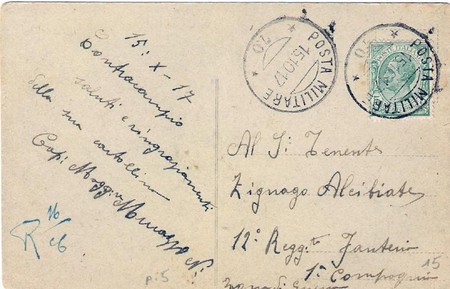 15. X - 17
Contracambio
saluti e ringraziamenti
Ella sua cartolina
Cap. Magg.
R 16
p:5
POSTA MILITARE
15.10.17
* 70 *
POSTA MILITARE
* 70 *
Al S. Tenente
Zignago Alcibiate
12° Regg.to Fanteria
1a Compagnia
15